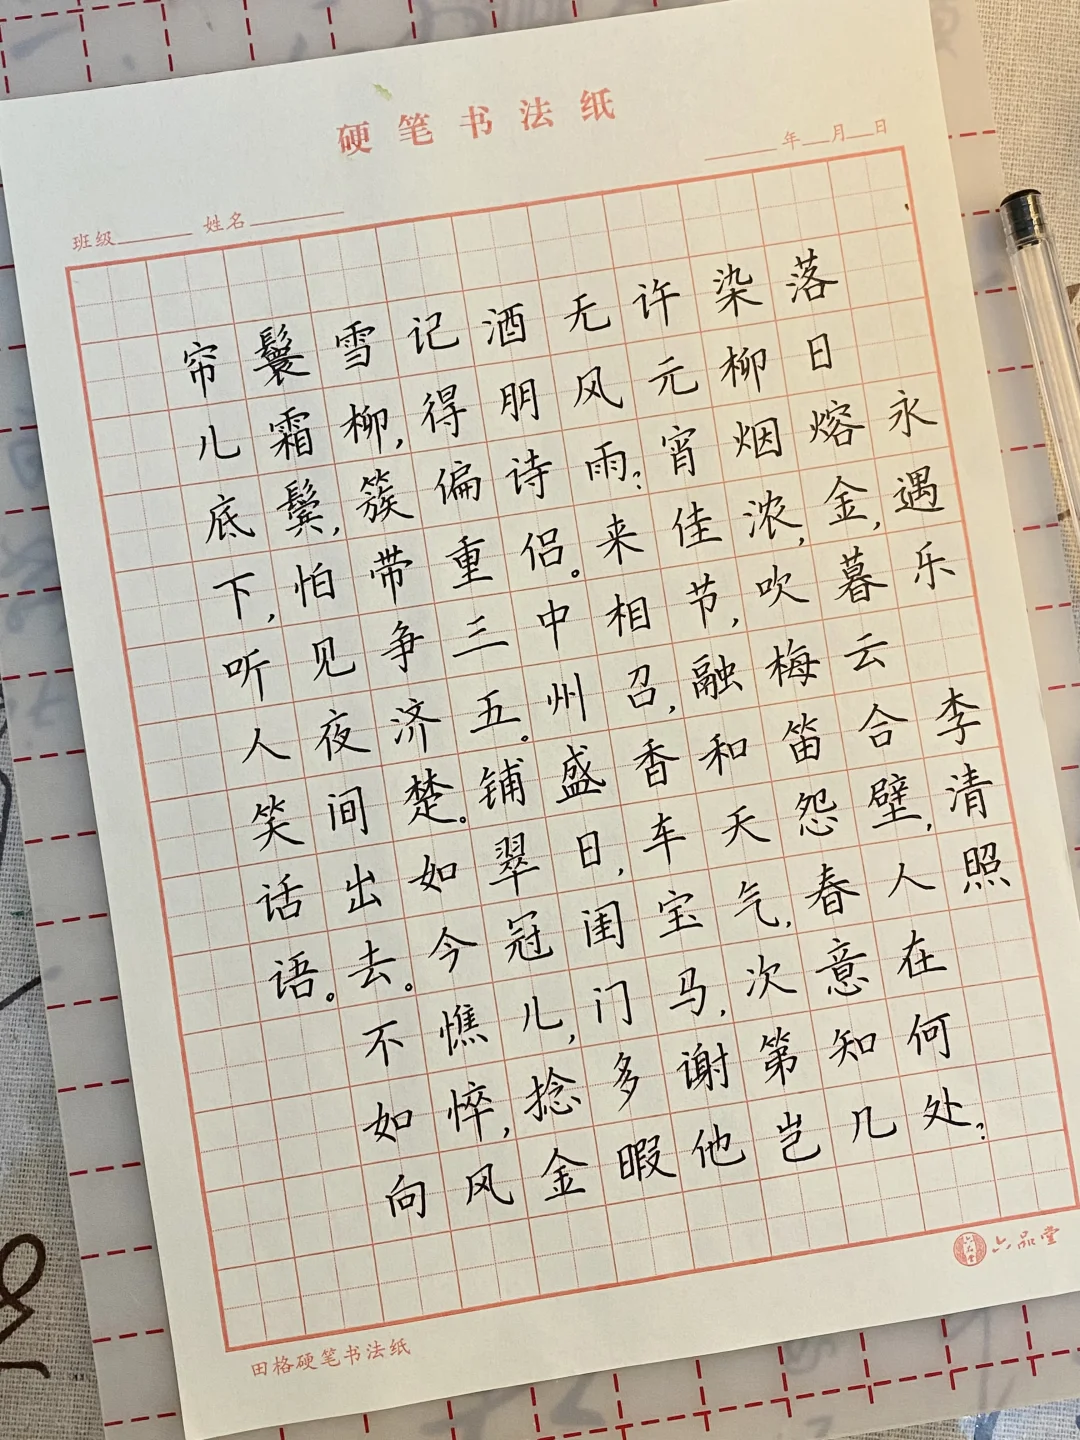 硬笔书法纸
年 月 日
班级 姓名
永遇乐 李清照
落日熔金,暮云合壁,人在何处?
染柳烟浓,吹梅笛怨春意知几
许元宵佳节,融和天气,次第岂
无风雨?来相召,香车宝马,谢他
酒朋诗侣。中州盛日,闺门多暇
记得偏重三五。铺翠冠儿,捻金
雪柳,簇带争济楚。如今憔悴,风
鬟霜鬓,怕见夜间出去。不如向
帘儿底下,听人笑话语。
六品堂
田格硬笔书法纸